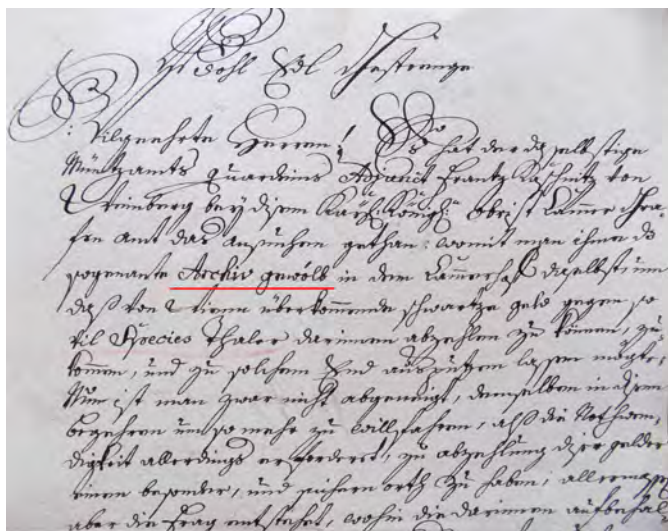 Wohl Edl Gestrenge
Vilgeehrte Herren! Es hat der daselbstige
Müntzamts Quardeins Adjunct Frantz Kaschnitz von
Weinberg bey disem Kay: König: Obrist Cammer Gra
fen Amt das Ansuchen gethan: womit man ihme das
sogenante Archiv gewölb in dem Cammerhof daselbst um
daß von Wienn überkommende schwartze geld gegen so
vil Species Thaler darinnen abzehlen zu können, zu-
kommen, und zu solchem End ausputzen lassen möchte,
Nun ist man zwar nicht abgeneigt, demselben in disem
begehren um so mehr zu willfahren, alß die Nothwen-
digkeit allerdings erforderet, zu abzehlung diser gelder
einen besonder, und sichern orth zu haben, allermassen
aber die Frag entstehet, wohin die darinnen aufbehal